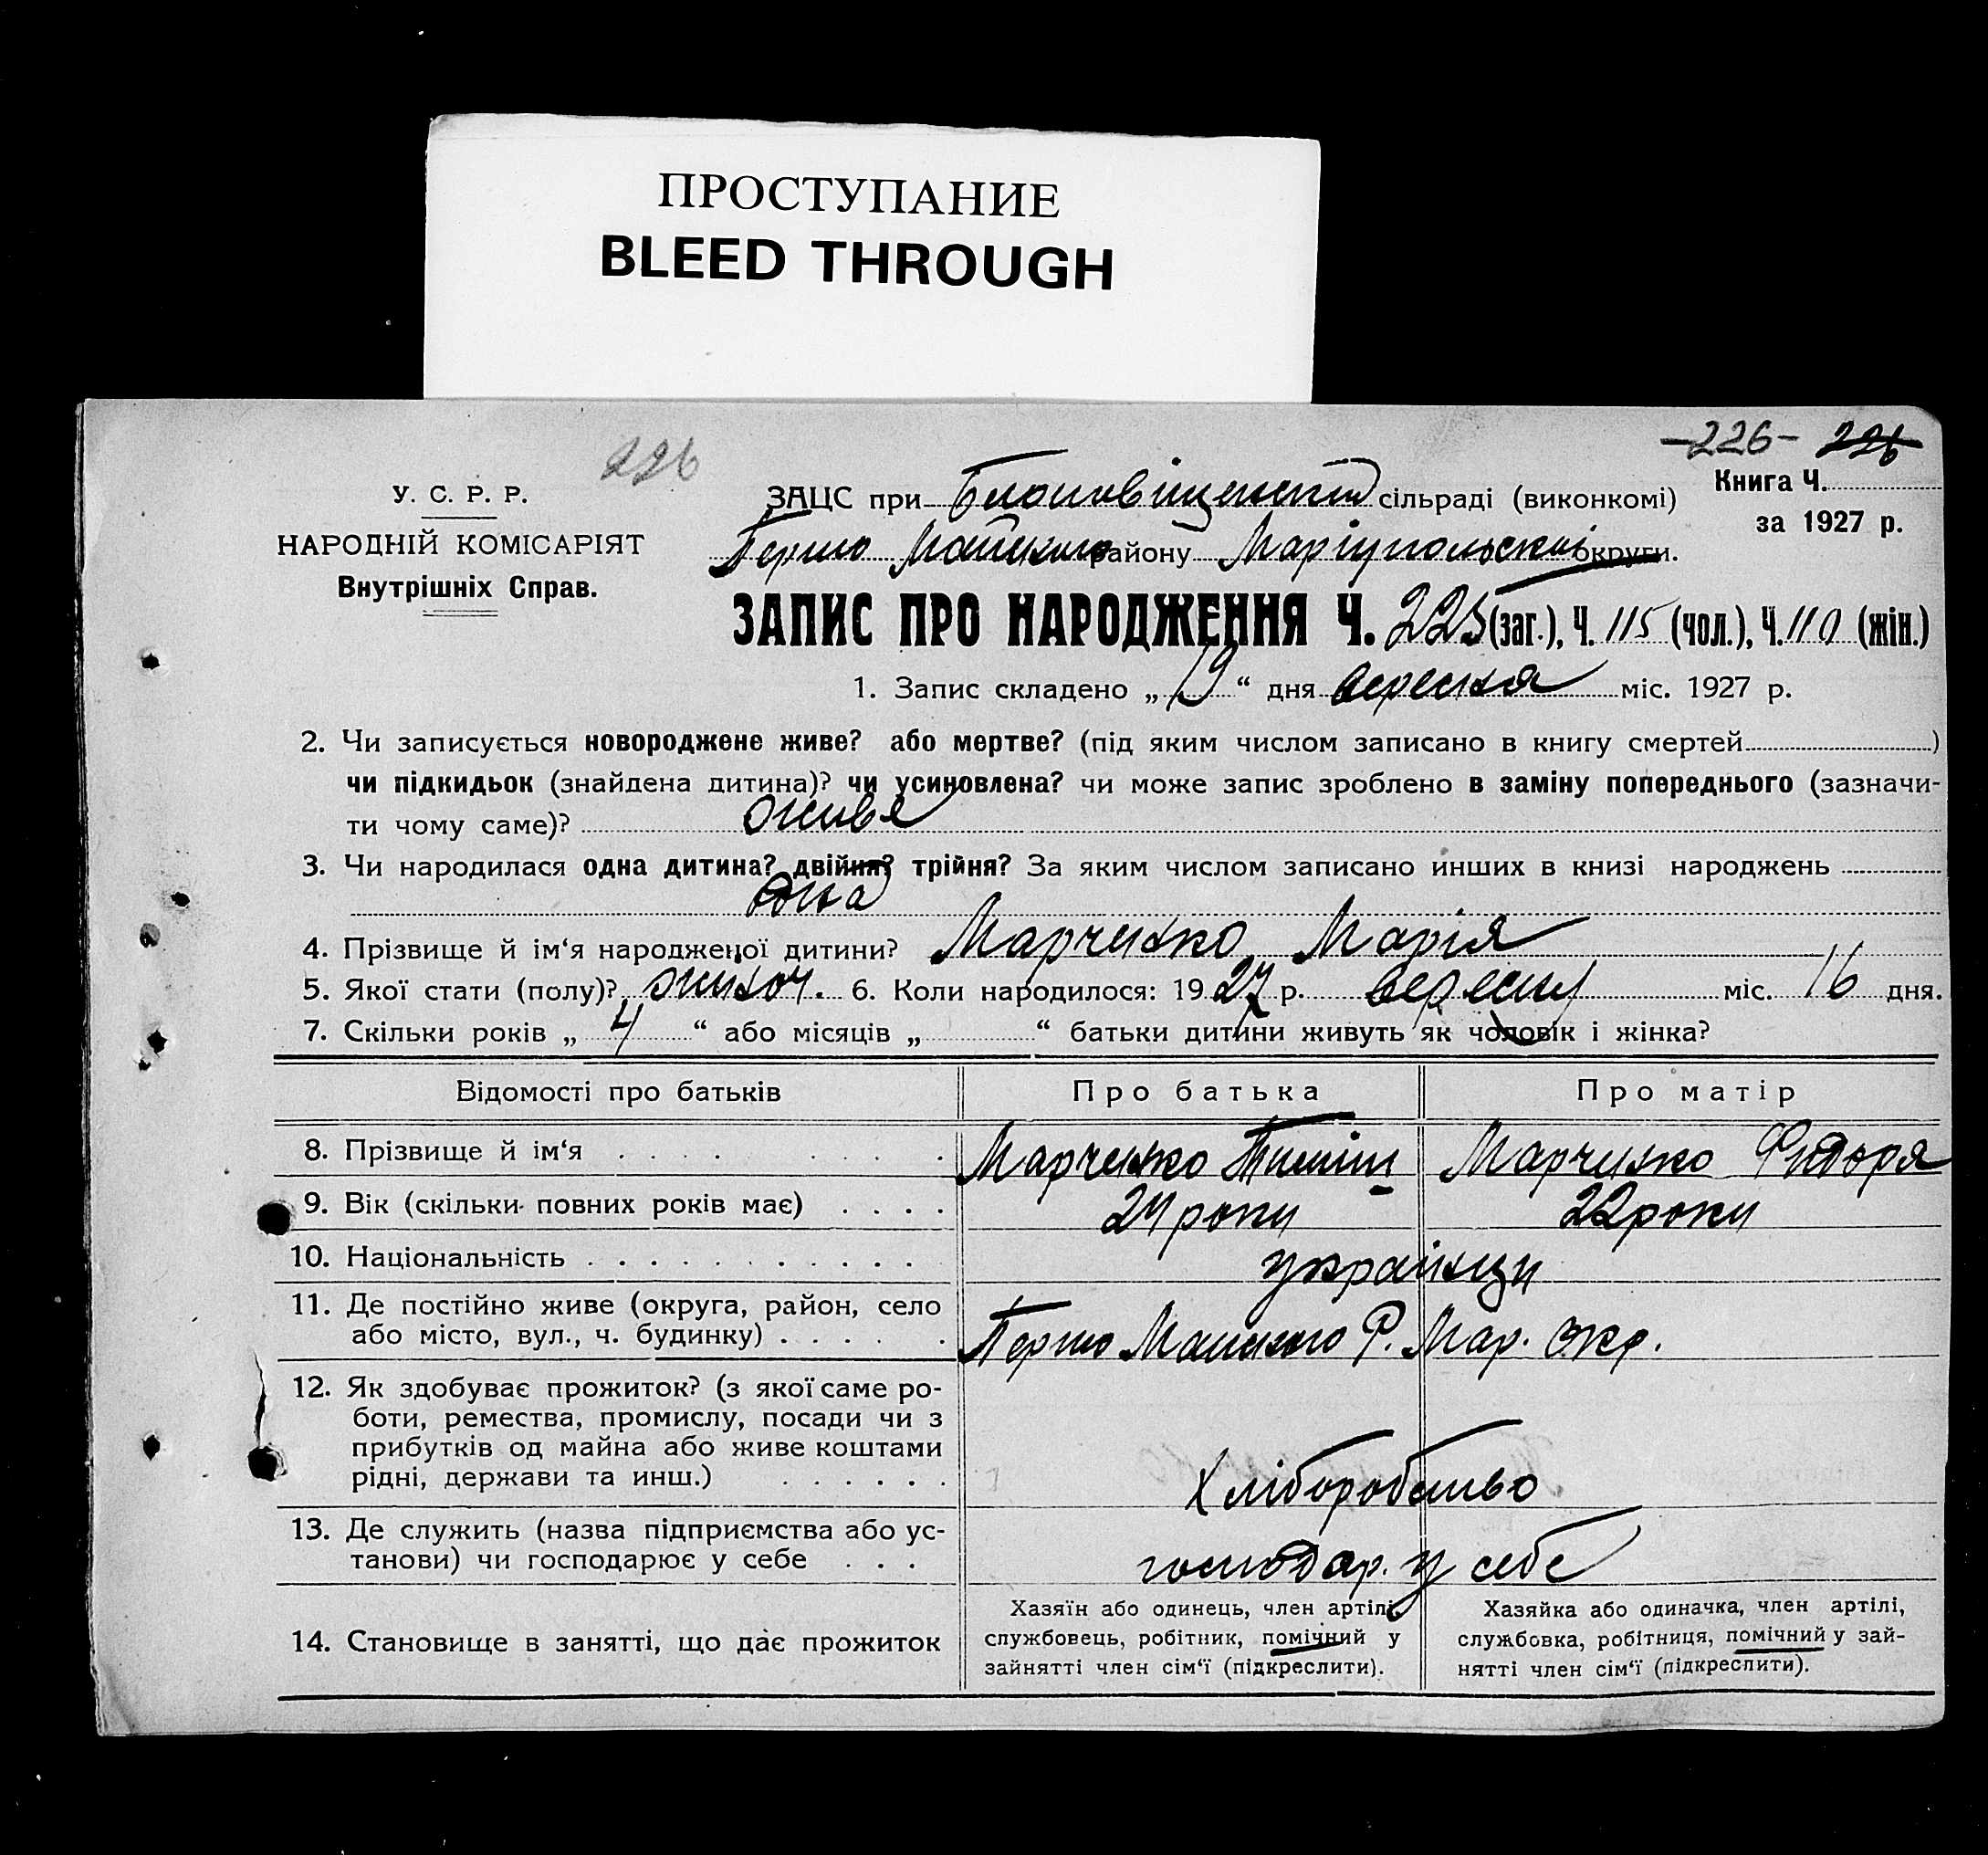 ПРОСТУПАНИЕ
BLEED THROUGH
226
-226- 226
У. С. Р. Р.
НАРОДНІЙ КОМІСАРІЯТ
Внутрішніх Справ.
Книга Ч.
за 1927 р.
ЗАЦС при сільраді (виконкомі)
Першо району Маріупольскої округи.
ЗАПИС ПРО НАРОДЖЕННЯ Ч. 225 (заг.), Ч. 115 (чол.), Ч. 110 (жін.)
1. Запис складено „ 19 “ дня вересня міс. 1927 р.
2. Чи записується новороджене живе? або мертве? (під яким числом записано в книгу смертей )
чи підкидьок (знайдена дитина)? чи усиновлена? чи може запис зроблено в заміну попереднього (зазначи-
ти чому саме)? живе
3. Чи народилася одна дитина? двійня? трійня? За яким числом записано инших в книзі народжень
4. Прізвище й ім‘я народженої дитини? Марченко Марія
5. Якої стати (полу)? жиноч. 6. Коли народилося: 1927 р. вересня міс. 16 дня.
7. Скільки років „ 4 “ або місяців „ “ батьки дитини живуть як чоловік і жінка?
Відомості про батьків Про батька Про матір
8. Прізвище й ім‘я . . . . . . . . Марченко Тиміш Марченко
9. Вік (скільки повних років має) . . . . 24 роки 22 роки
10. Національність . . . . . . . . . . . українци
11. Де постійно живе (округа, район, село
або місто, вул., ч. будинку) . . . . . . Першо Р. Мар. окр.
12. Як здобуває прожиток? (з якої саме ро-
боти, ремества, промислу, посади чи з
прибутків од майна або живе коштами
рідні, держави та инш.) . . . . . . Хліборобство
13. Де служить (назва підприємства або ус-
танови) чи господарює у себе . . . господар. у себе
14. Становище в занятті, що дає прожиток
Хазяїн або одинець, член артілі,
службовець, робітник, помічний у
зайнятті член сім‘ї (підкреслити).
Хазяйка або одиначка, член артілі,
службовка, робітниця, помічний у зай-
нятті член сім‘ї (підкреслити).